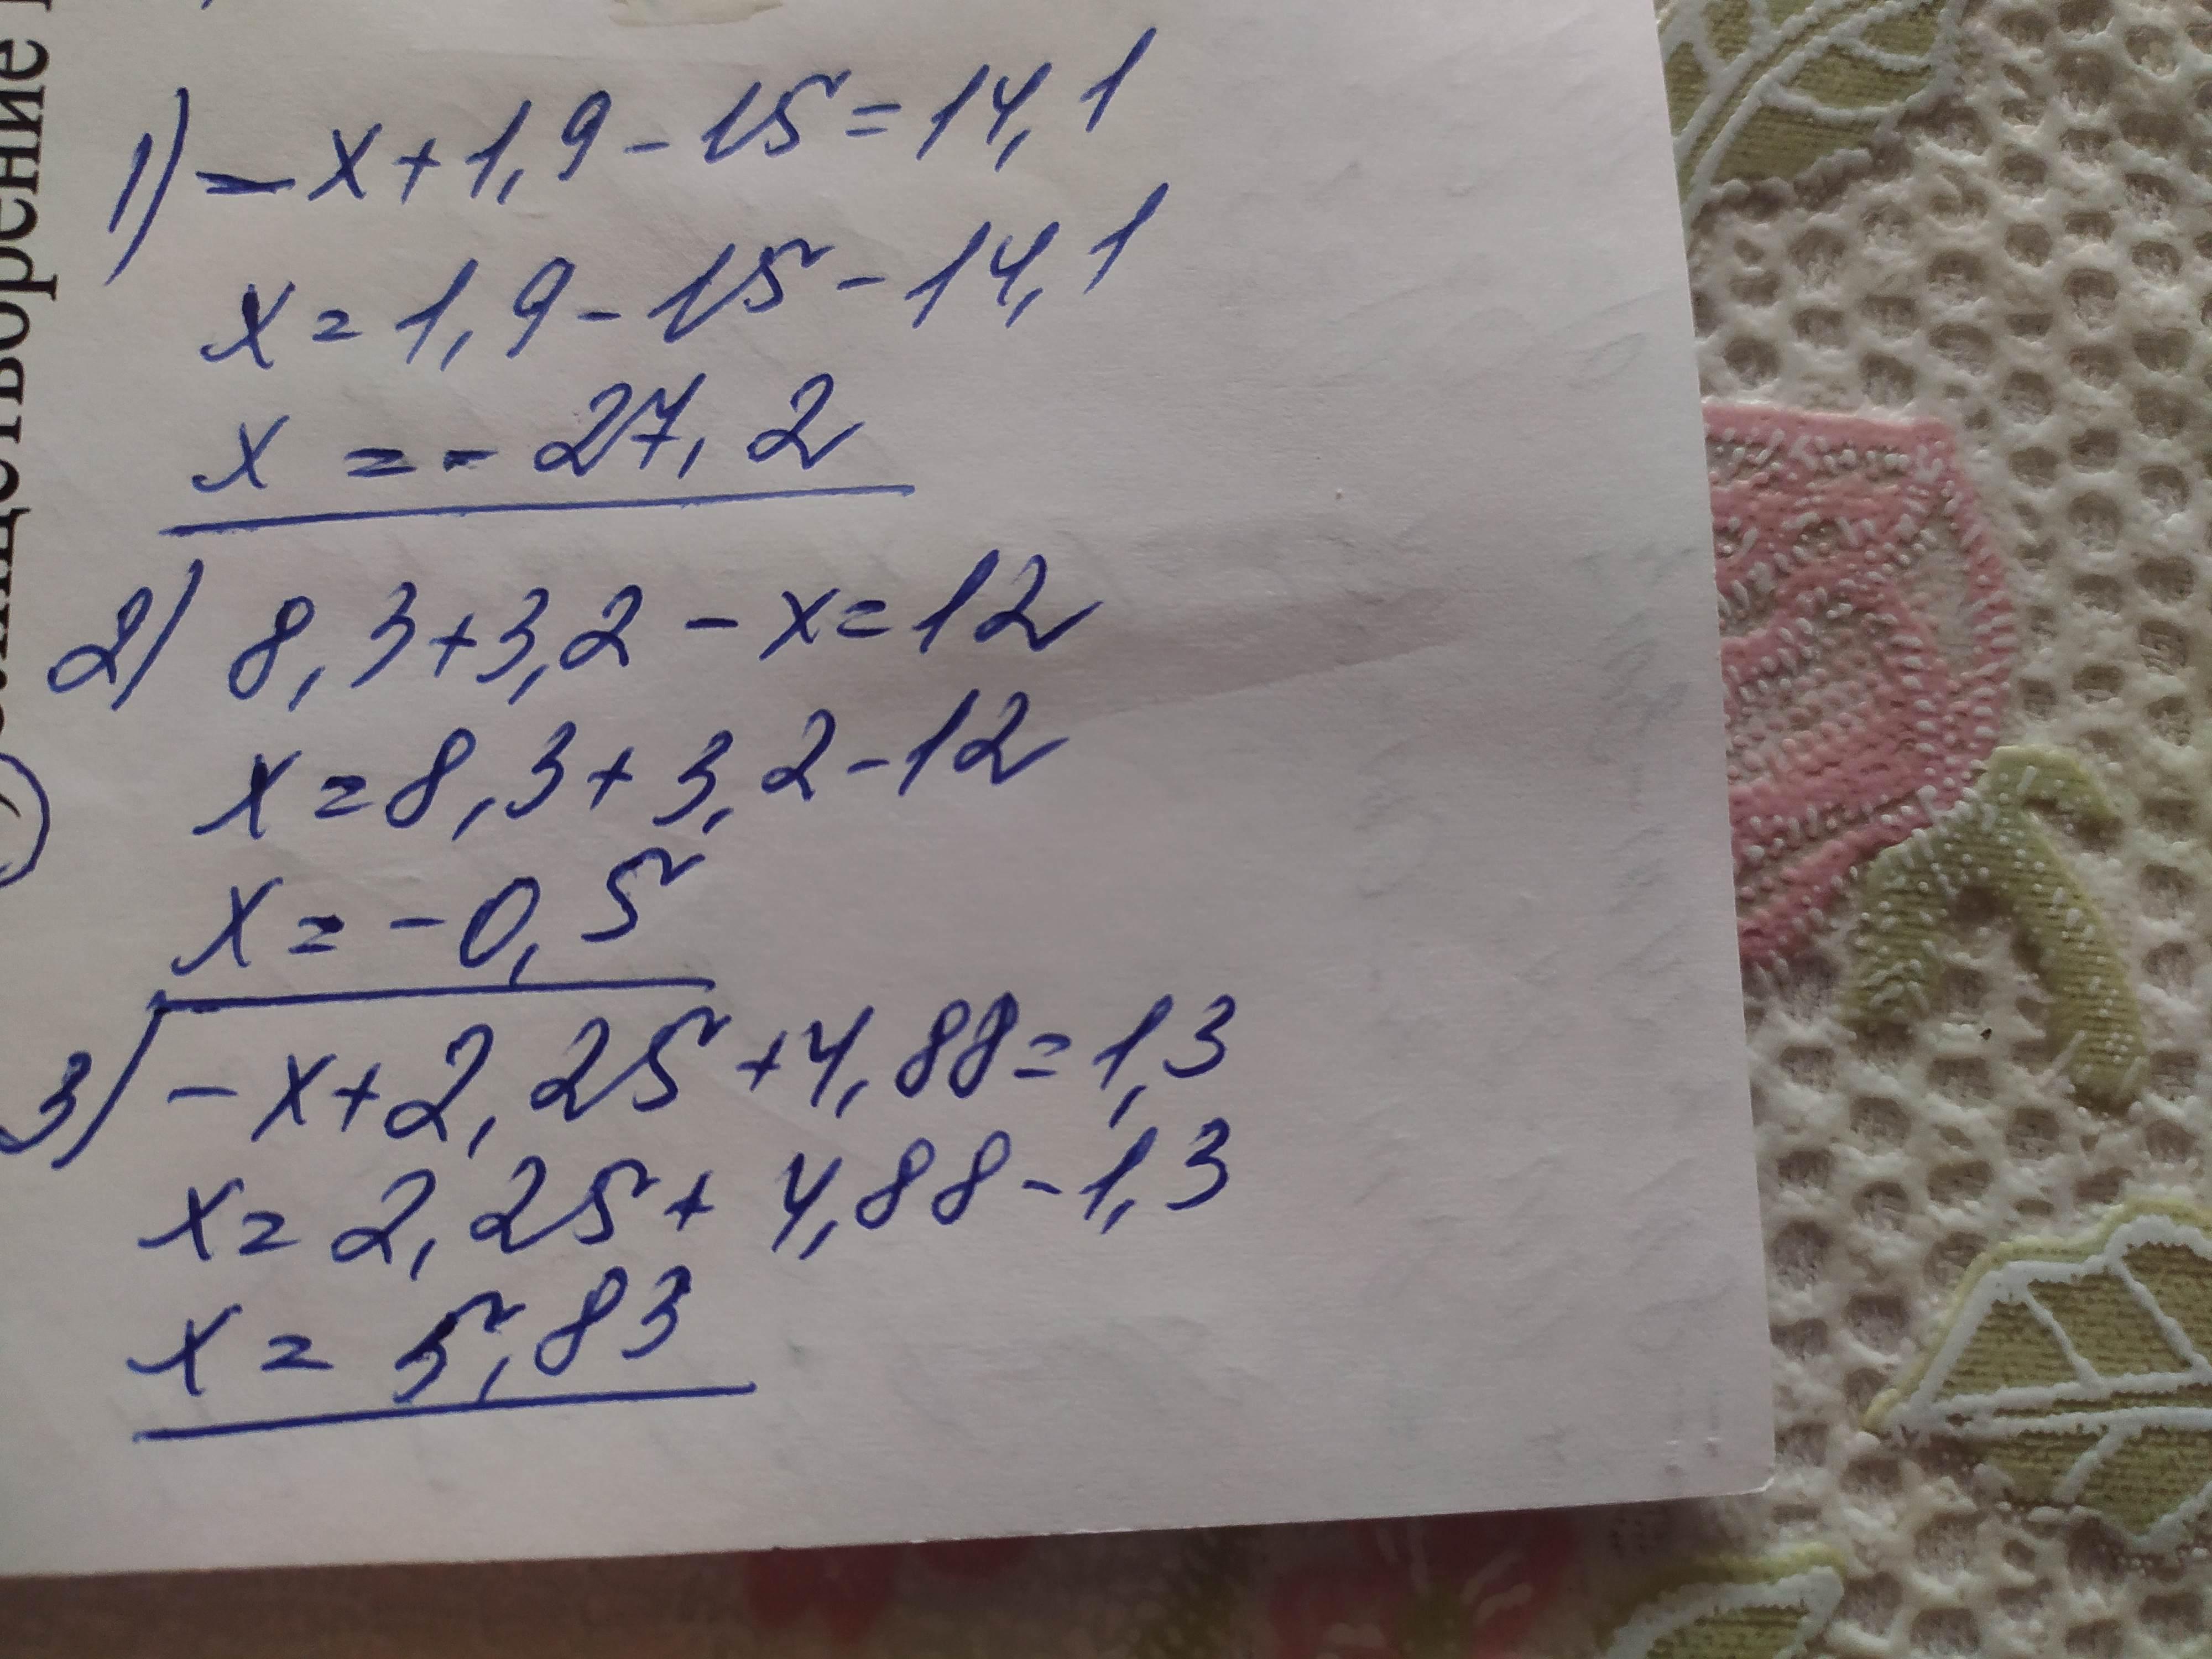 1) -x+1,9-15=14,1
x=1,9-15-14,1
x=-27,2
2) 8,3+3,2-x=12
x=8,3+3,2-12
x=-0,5
3) -x+2,25+4,88=1,3
x=2,25+4,88-1,3
x=5,83